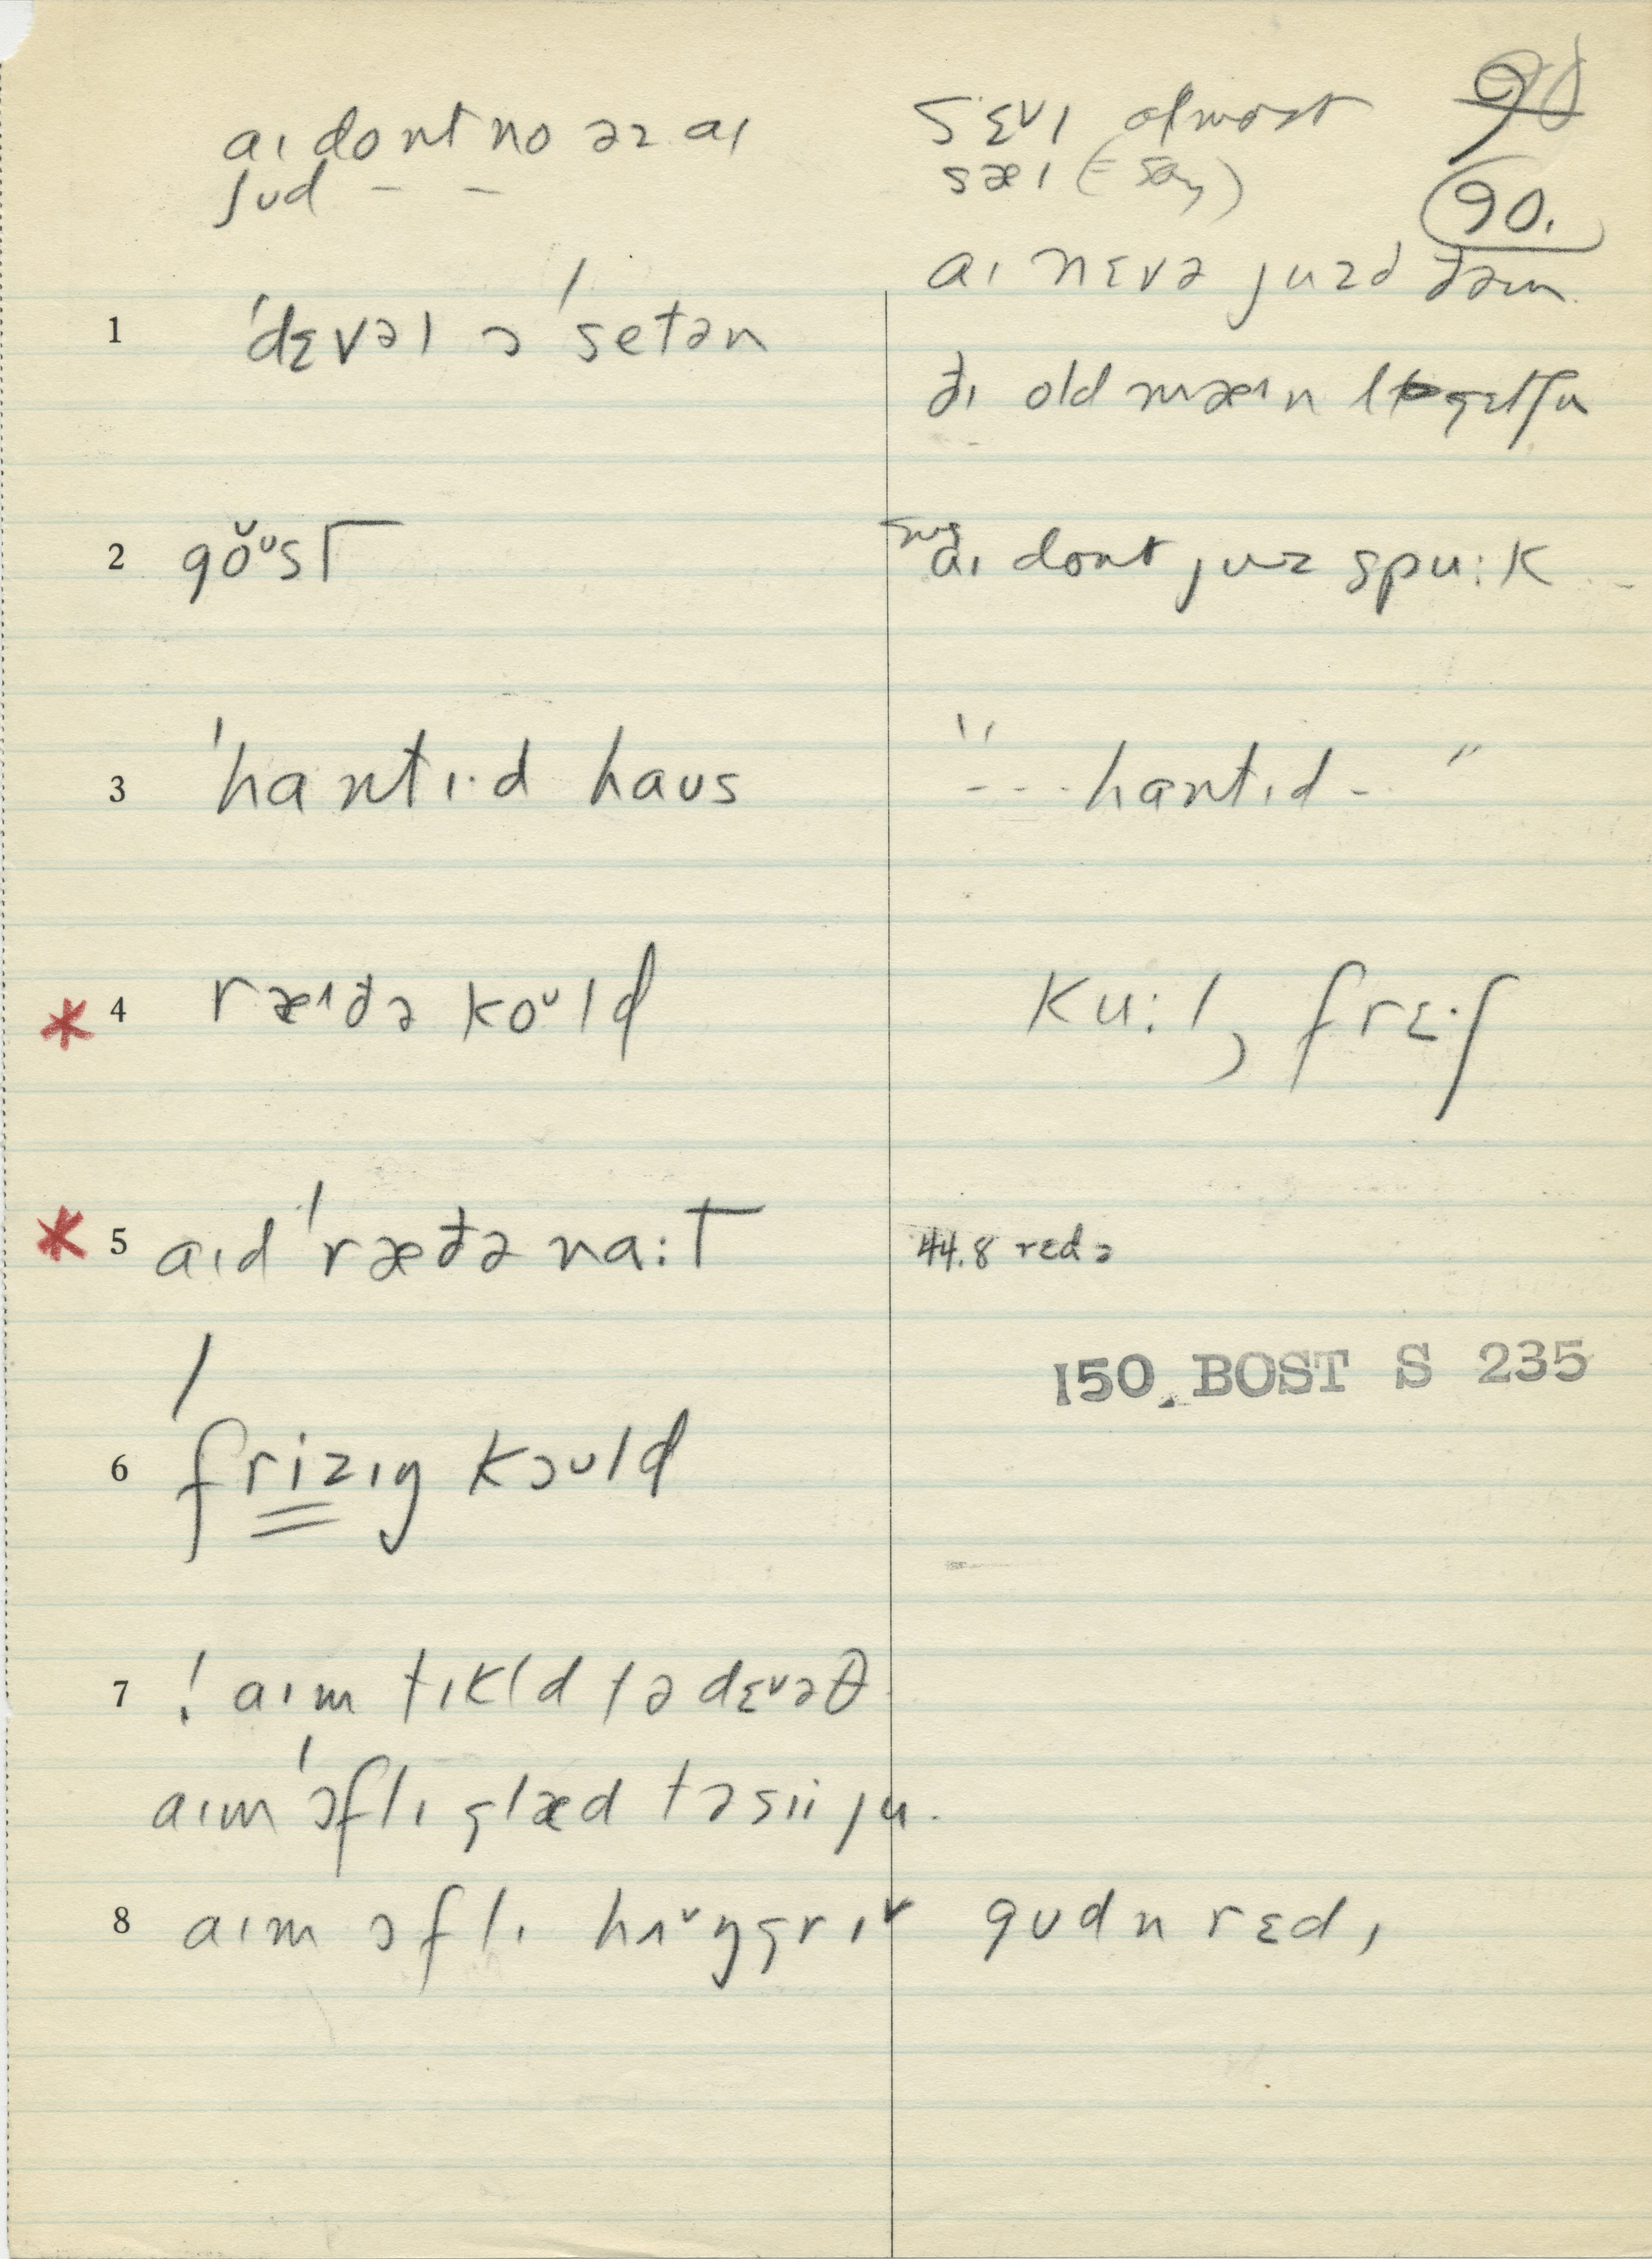 aɪ dont no əz aɪ
ʃud – –
sɛvɪ almost
sæɪ (= say)
90
90.
aɪ nɛvə juzd ðəm
1 ˈdɛvəl ɔ ˈsetən
ðɪ old mæɪn
2 gŏᴜst
aɪ dont juz spu:k
3 ˈhantɪ·d haus
" - - - hantɪd - "
* 4 ræɪðə koᴜld
ku:l, frɛ·ʃ
* 5 aɪd ˈræðə na:t
44.8 redə
150. BOST S 235
6 frizɪŋ kɔᴜld
7 ! aɪm tɪkld tə dɛᴜəθ
aɪm ˈɔflɪ glæd tə sii ju.
8 aɪm ɔflɪ hʌ˅ŋgrɪ˅ gudn rɛdɪ